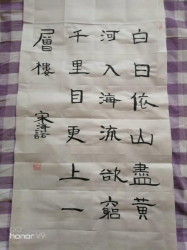 白日依山盡黃
河入海流欲窮
千里目更上一
層樓
honor